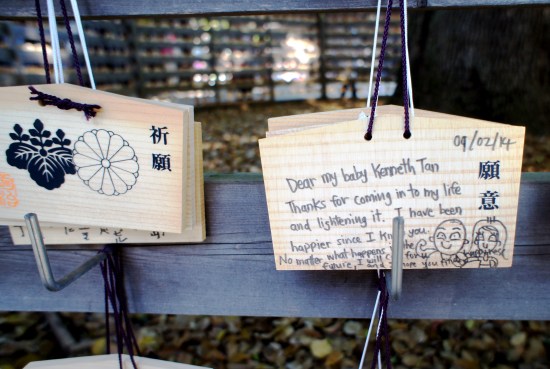 祈願
09/02/14
願意
Dear my baby Kenneth Tan
Thanks for coming in to my life
and lightening it. I have been
happier since I know you.
No matter what happens the
future, I will
hope you